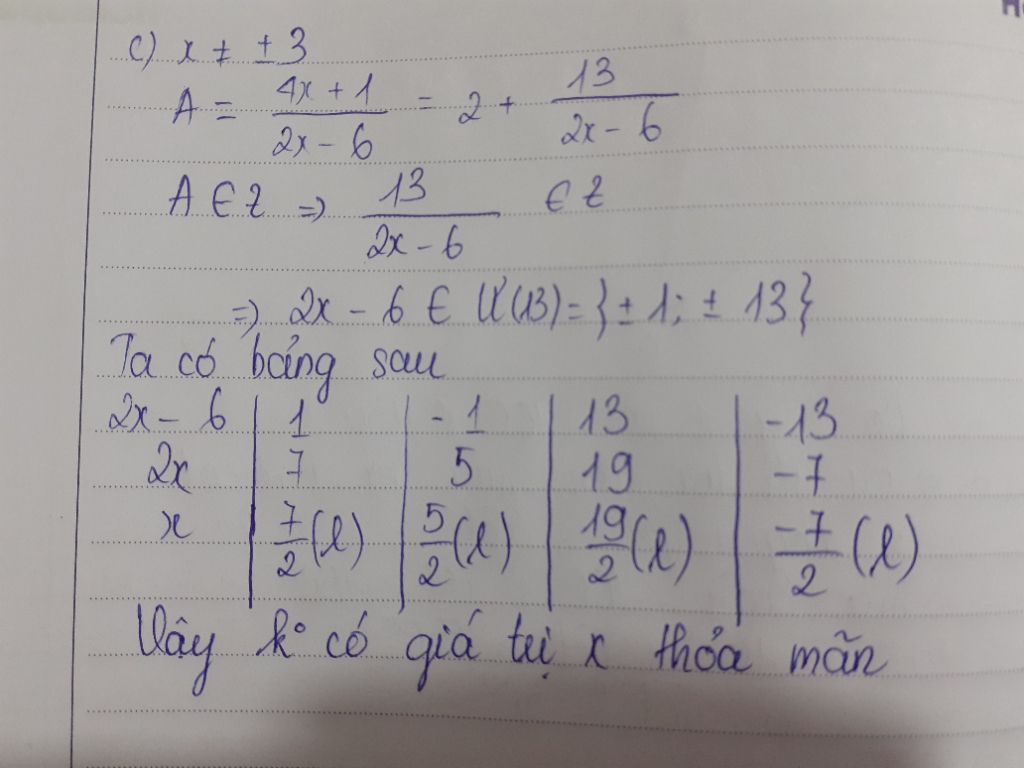 c) x ≠ ± 3
A = (4x + 1)/(2x - 6) = 2 + 13/(2x - 6)
A ∈ Z => 13/(2x - 6) ∈ Z
=> 2x - 6 ∈ Ư(13) = {± 1; ± 13}
Ta có bảng sau
2x - 6 | 1 | -1 | 13 | -13
2x | 7 | 5 | 19 | -7
x | 7/2 (l) | 5/2 (l) | 19/2 (l) | -7/2 (l)
Vậy k° có giá trị x thỏa mãn